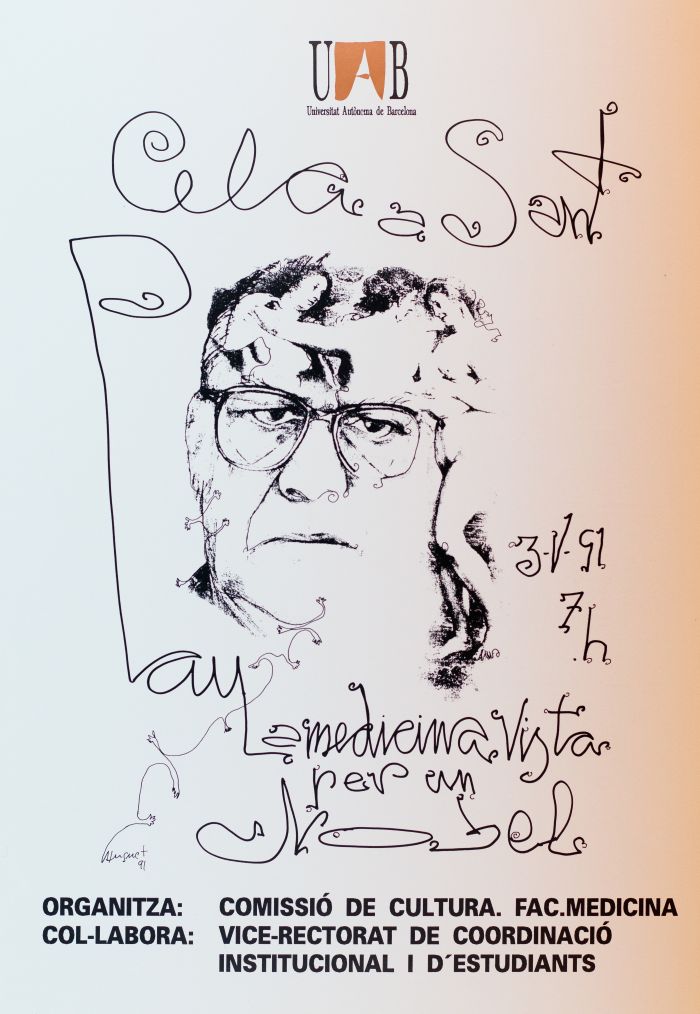 UAB
Universitat Autònoma de Barcelona
Cela a Sant
Pau
3-V-91
7.h
La medicina vista
per un
Nobel
Huguet
91
ORGANITZA: COMISSIÓ DE CULTURA. FAC.MEDICINA
COL-LABORA: VICE-RECTORAT DE COORDINACIÓ
INSTITUCIONAL I D´ESTUDIANTS